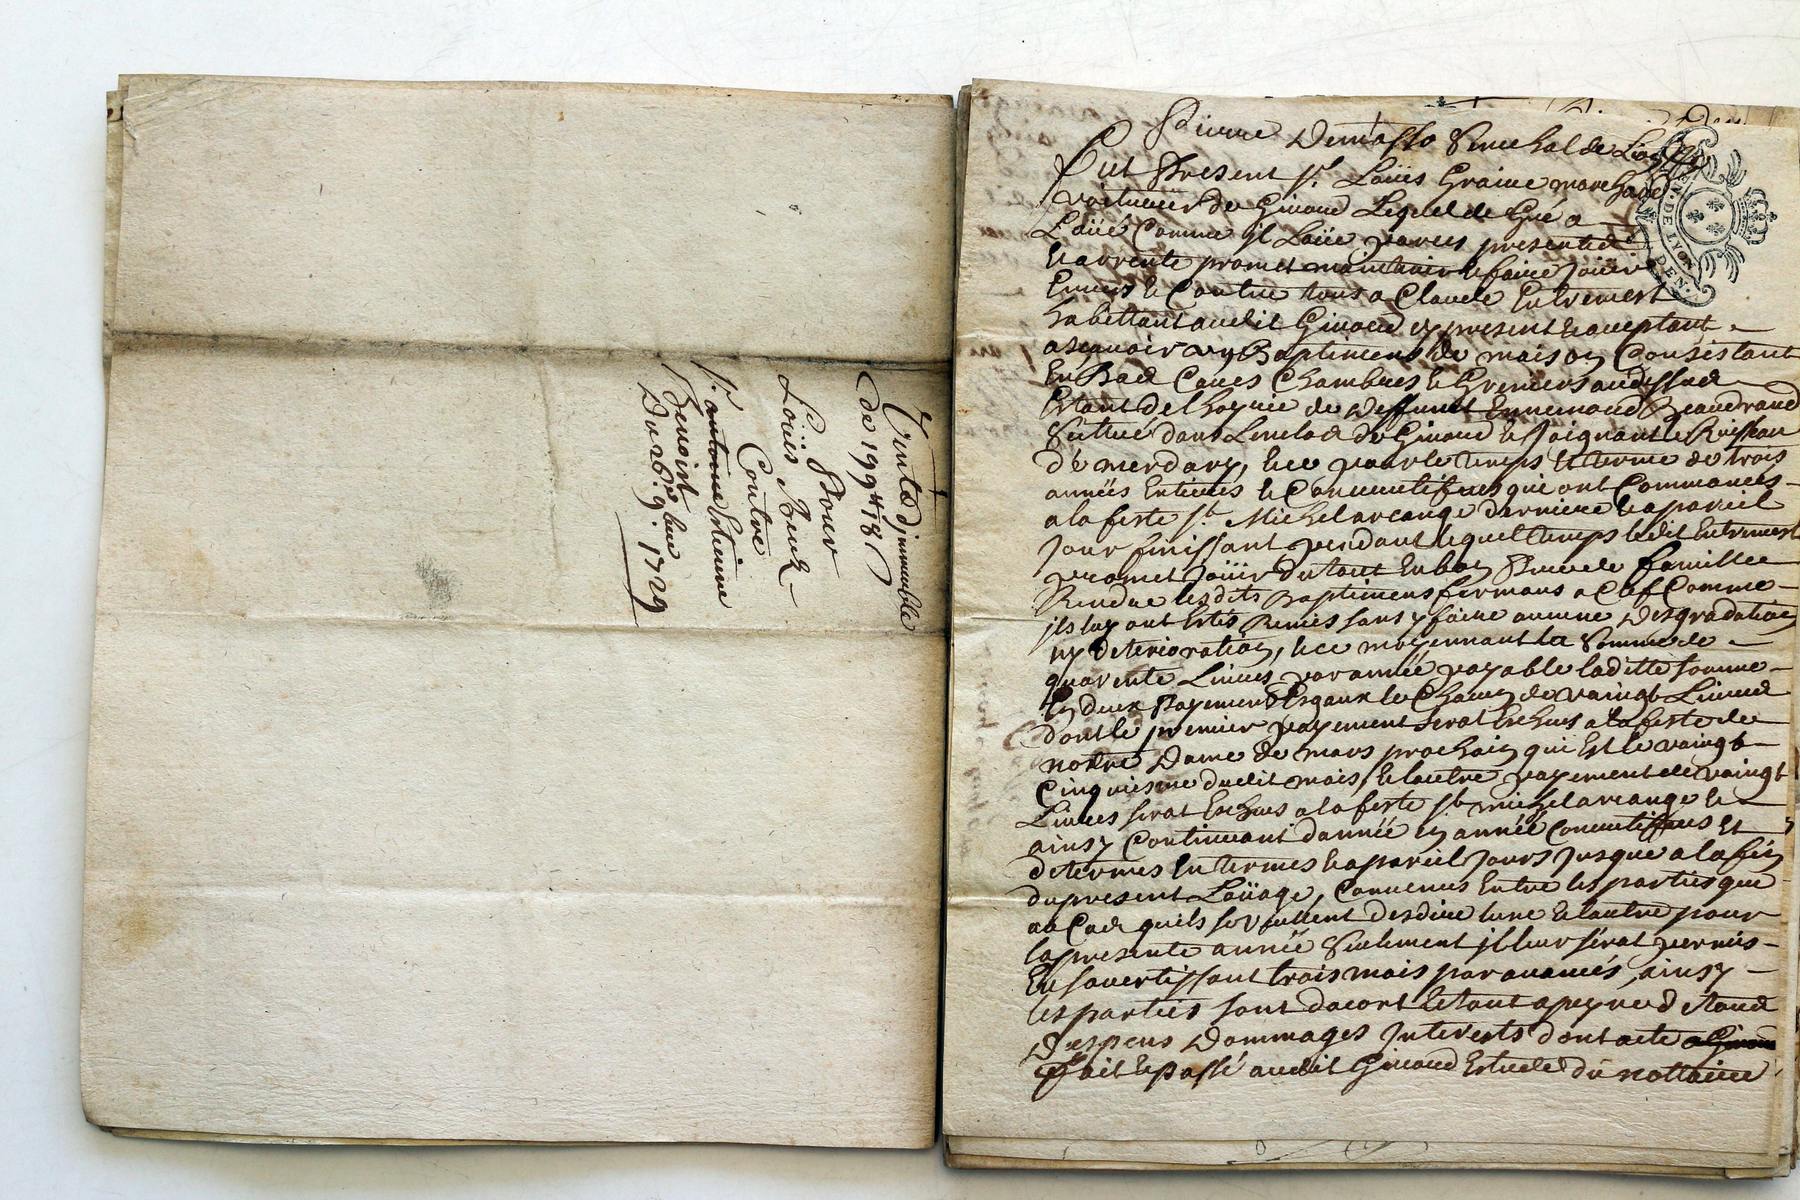 Vente dimmuble
de 199# 18s
Pour
Loüis
Contre
Sr. antoine Estienne
Benoist
Du 26e. 9bre 1729
Pierre Demasso Senechal de Lion
Fut Present Sr. Loüis Graine marchand
voiturier de Givord Lequel de Gré a
Loüé Comme jl Loüe par ces presentes
et arrente promet maintenir et faire joüir
Envers et Contre tous a Claude Entremert
habettant audit Givord ey present et acceptant
ascauoir vng Baptiment de maison Consistant
En Bas Caues Chambres et Greniers audessus
Estant de lhoyrie de deffunct Ennemond Beaudrand
Scittué dans Lenclos de Givord et Joignant le Ruisseau
de merdary, et ce pour le temps et terme de trois
années Entieres et Consecutifues qui ont Commancés
a la feste St. Michel arcange derniere et a pareil
Jour finissant pendant lequel temps ledit Entremert
promet Joüir du tout En bon Pere de famillie
Rendre lesdits Baptimens fermans a Clef Comme
jls luy ont Estés Remis sans y faire aucune Desgradation
ny deterioration, et ce moyennant la Somme de
quarente Liures par année payable laditte somme
En deux Payements Esgaux et Chacun de vaingt Liures
dont le premier payement serat Escheus a la feste de
nostre Dame de mars prochain qui Est le vaingt
Cinquiesme dudit mois, et lautre payement de vaingt
Liures serat Escheus a la feste St. michel arcange et
ainsy Continuant dannée en année Consecutifues Et
de termes En termes et a pareil Jours Jusque a la fin
du present Loüage, Conuenus Entre les parties que
au Cas quils se veullent desdire lune et lautre pour
la presente année Seulement jl leur serat permis
En savertissant trois mais par auances, ainsy
les parties sont dacort et tout a peyne de tous
Despens Dommages Interests dont acte
Fait et passé audit Givord Estude du nottaire